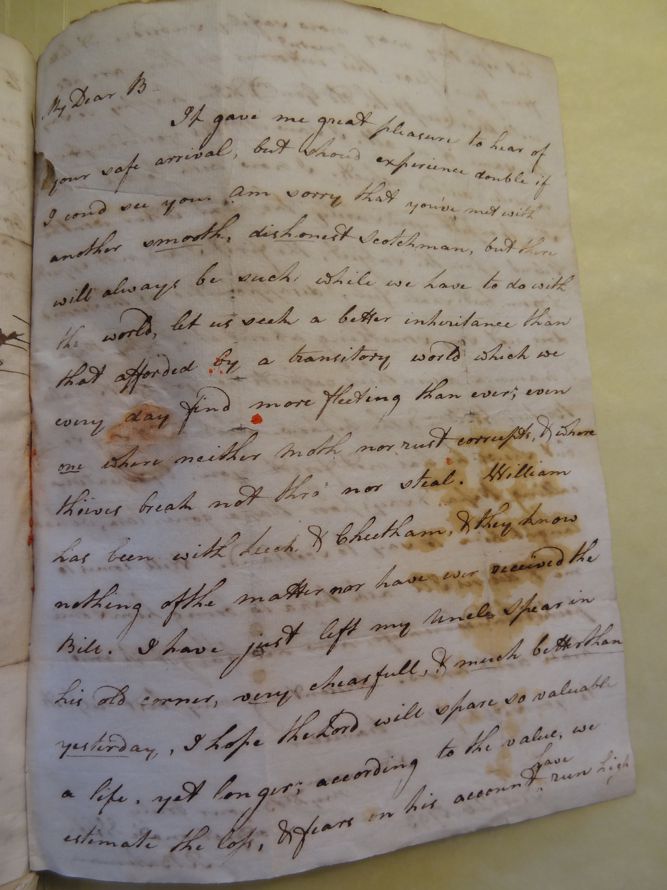 My Dear B
It gave me great pleasure to hear of
your safe arrival, but shoud experience double if
I coud see you. am sorry that you've met with
another smooth, dishonest Scotchman, but there
will always be such while we have to do with
the world, let us seek a better inheritance than
that afforded by a transitory world which we
every day find more fleeting than ever; even
one where neither moth nor rust corrupts, & where
theives break not thro' nor steal. William
has been with Leech & Cheetham, & they know
nothing of the matter nor have ever received the
Bill. I have just left my Uncle Spear in
his old corner, very chearfull, & much better than
yesterday, I hope the Lord will spare so valuable
a life, yet longer; according to the value, we
estimate the loss, & fears on his account have run high